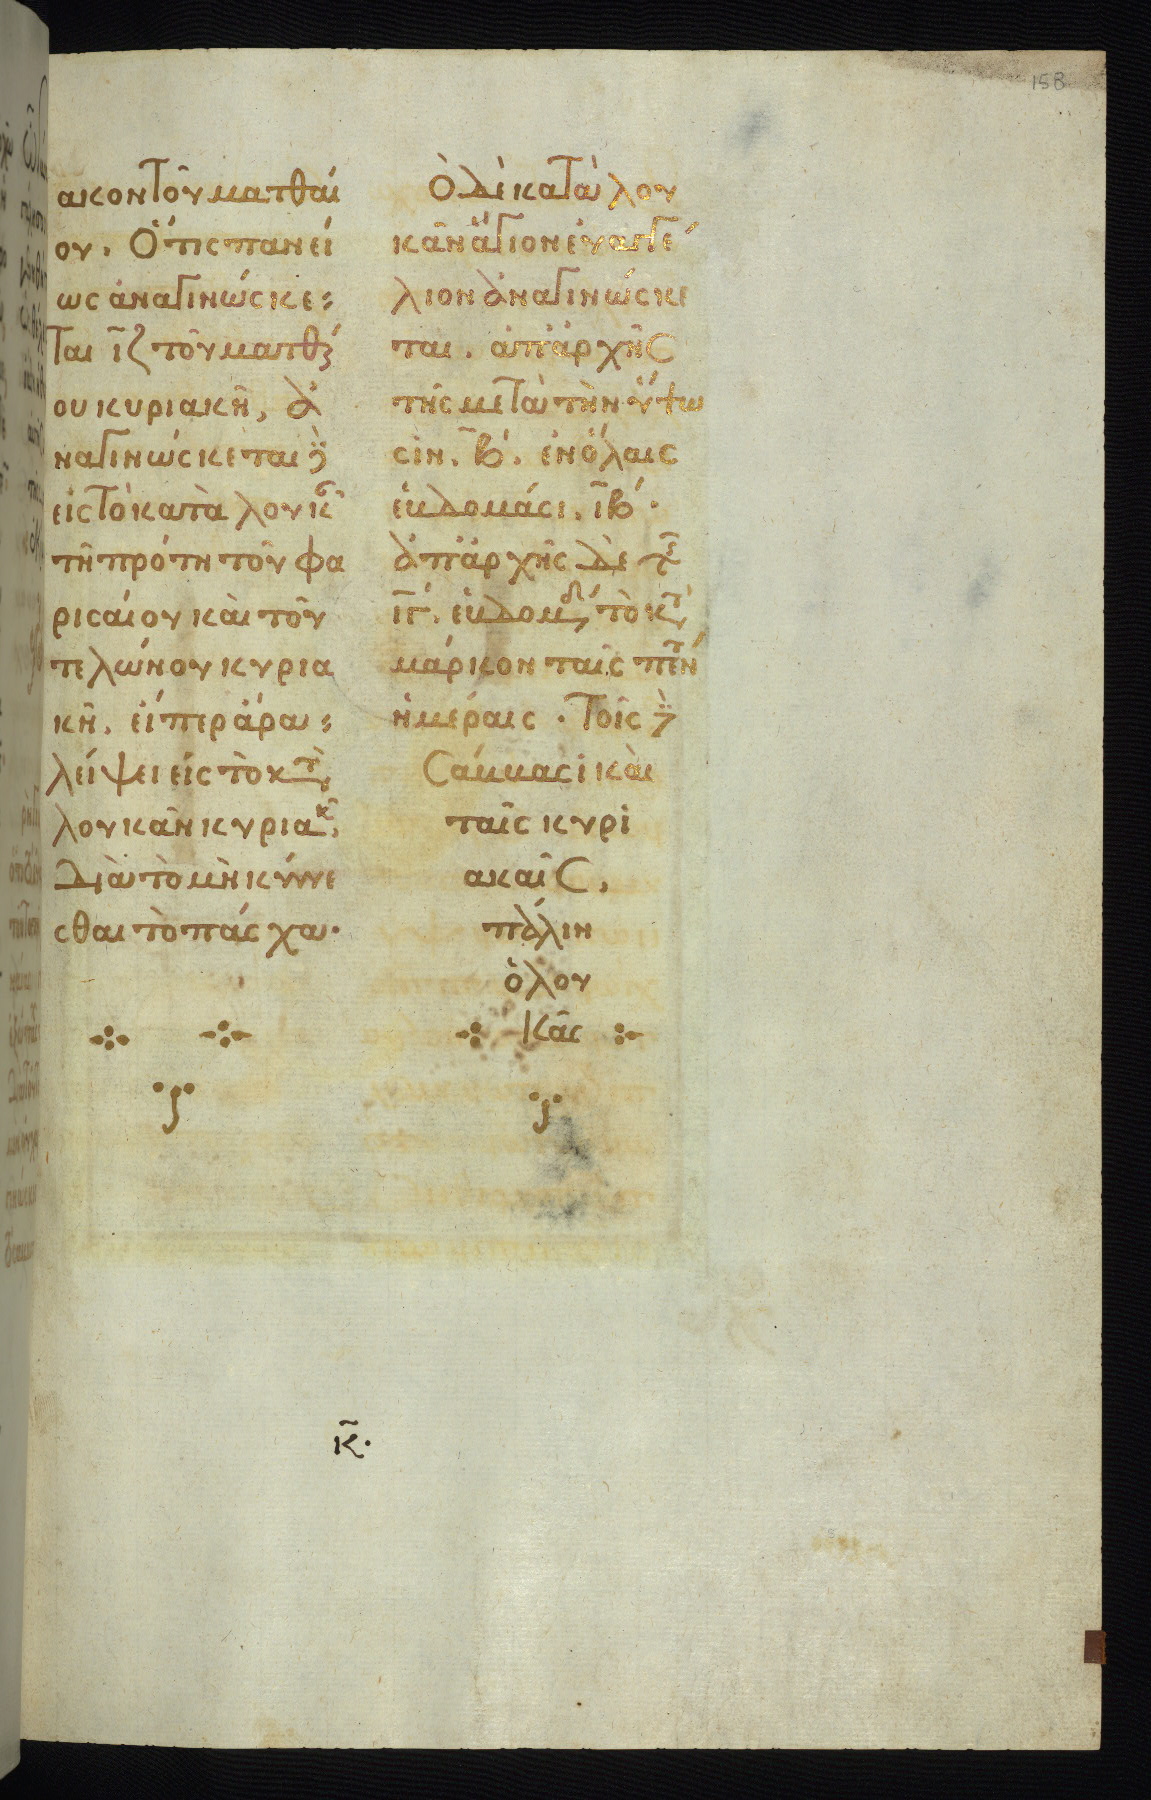 158
ακον τοῦ ματθαί
ου. Ὅτι σπανεί
ως ἀναγινώσκε:
ται ῑζ τοῦ ματθζ
ου κυριακῆ, ἀ
ναγινώσκεται
εἰς τὸ κατὰ λουκ
τῆ πρότη τοῦ φα
ρισαίου καὶ τοῦ
τελώνου κυρια
κῆ. εἴπερ ἄρα:
λείψει εἰς τὸ κτ
λουκᾶν κυριακ,
Διὰ τὸ μὴ κύνε
σθαι τὸ πάσχα·
Ὁ δὲ κατὰ λου
κᾶν ἅγιον ἐυαγγέ
λιον ἀναγινώσκε
ται. ἀπ' ἀρχῆς
τῆς μετὰ τὴν ὕψω
σίν. β. ἐν ὅλαις
ἑυδομάσι. ῑβ·
ἀπ' ἀρχῆς δὲ τ
ῑγ. ἑυδομδ, τὸ κτ
μάρκον ταῖς πεν
ἡμέραις · Τοῖς
Σάυυασι καὶ
ταῖς κυρι
ακαῖς,
πάλιν
ὁ λου
κᾶς
κ̄.